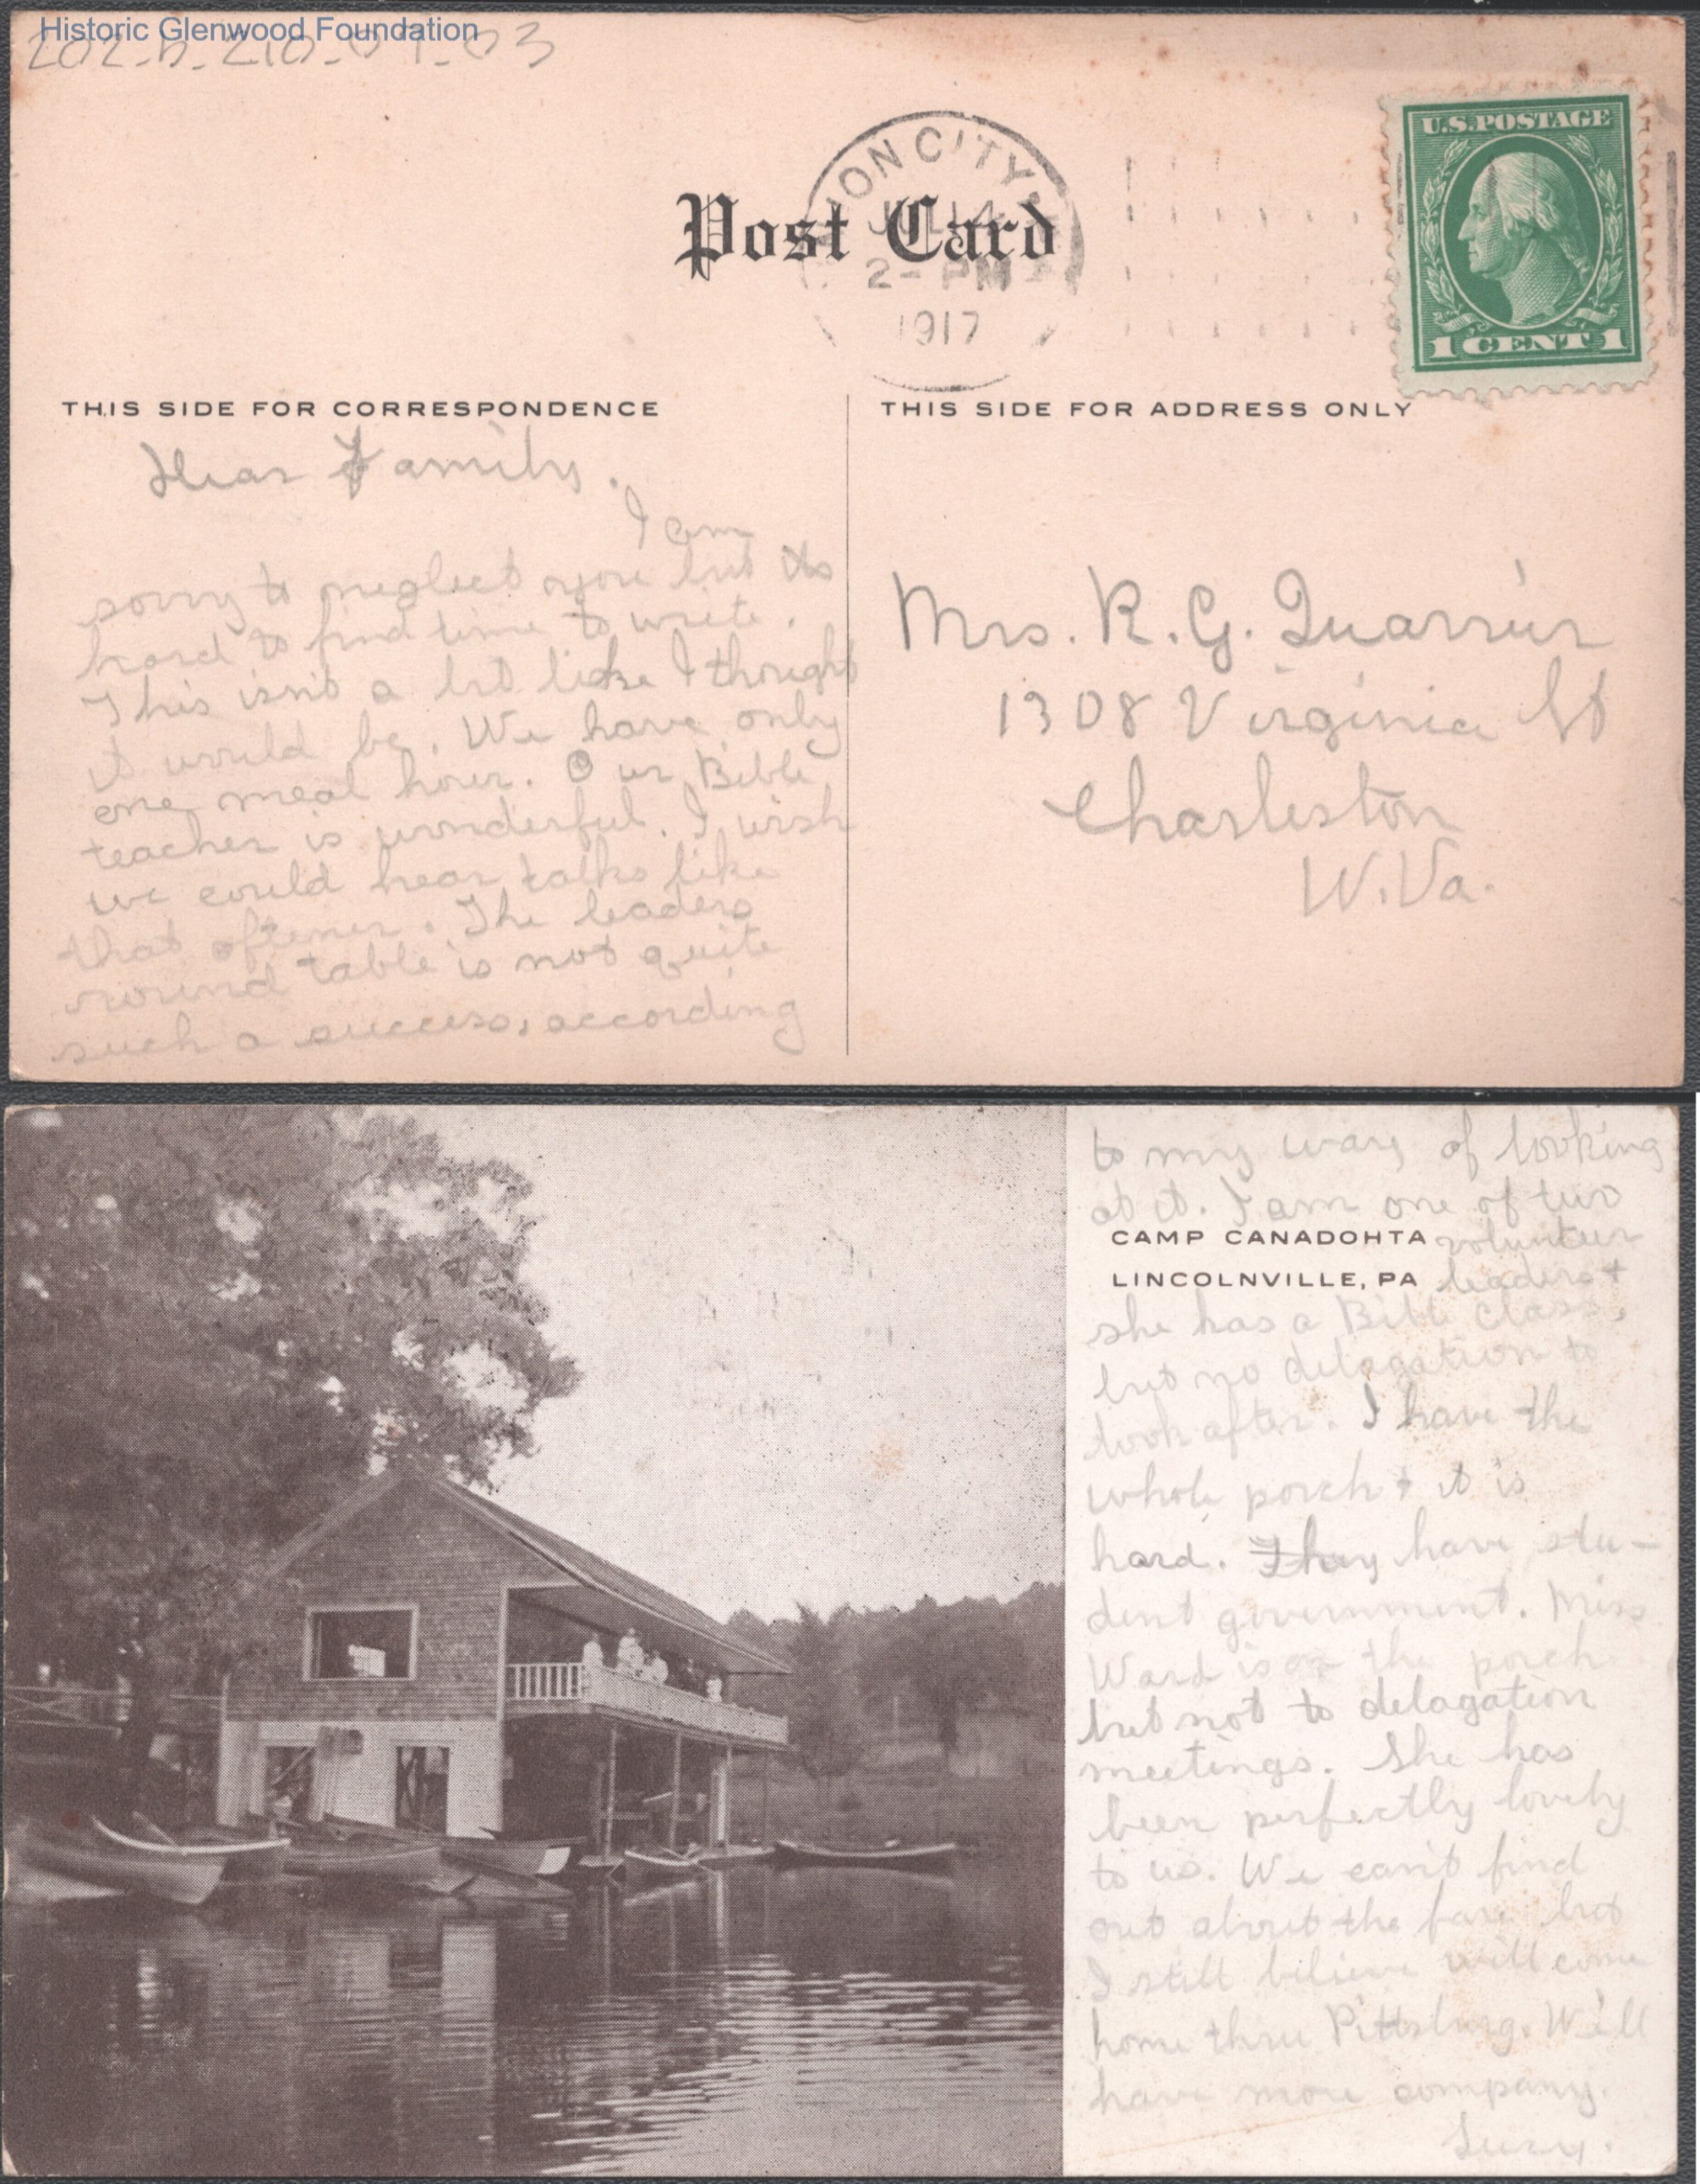 Historic Glenwood Foundation
202_b_210_01_03
ION CITY
JUL 14
2- PM
1917
Post Card
U.S. POSTAGE
1 CENT 1
THIS SIDE FOR CORRESPONDENCE
THIS SIDE FOR ADDRESS ONLY
Dear Family.
I am
sorry to neglect you but its
hard to find time to write.
This isn't a bit like I thought
it would be. We have only
one meal hour. Our Bible
teacher is wonderful. I wish
we could hear talks like
that oftener. The leaders
round table is not quite
such a success, according
Mrs. R. G. Quarrier
1308 Virginia St
Charleston
W. Va.
to my way of looking
at it. I am one of two
CAMP CANADOHTA
LINCOLNVILLE, PA
volunteer
leaders +
she has a Bible class,
but no delagation to
look after. I have the
whole porch + it is
hard. They have stu-
dent government. Miss
Ward is on the porch
but not to delagation
meetings. She has
been perfectly lovely
to us. We can't find
out about the fare but
I still believe will come
home thru Pittsburg. We'll
have more company.
Suzy.